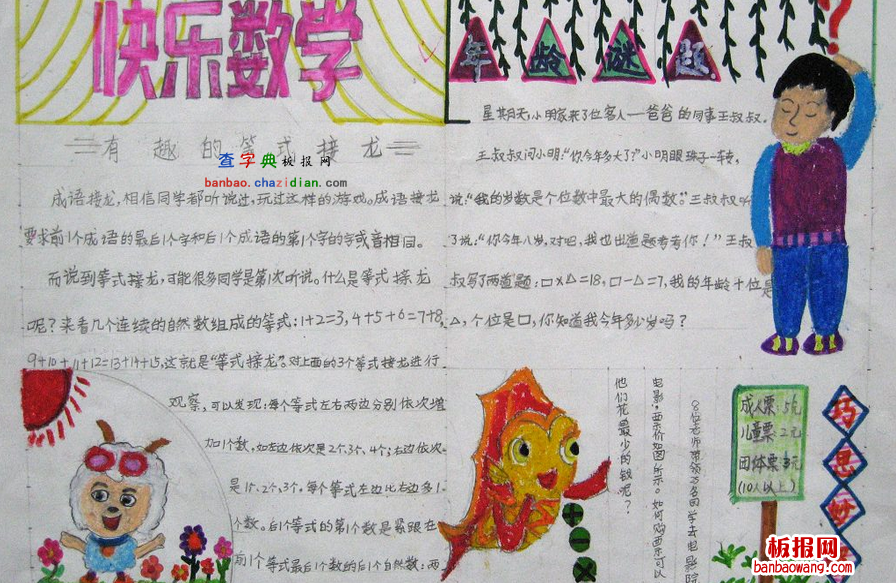 快乐数学
有趣的等式接龙
查字典板报网
banbao.chazidian.com
成语接龙,相信同学都听说过,玩过这样的游戏。成语接龙
要求前1个成语的最后1个字和后1个成语的第1个字的字或音相同。
而说到等式接龙,可能很多同学是第1次听说。什么是等式接龙
呢?来看几个连续的自然数组成的等式:1+2=3,4+5+6=7+8,
9+10+11+12=13+14+15,这就是“等式接龙”。对上面的3个等式接龙进行
观察,可以发现:每个等式左右两边分别依次增
加1个数,如左边依次是2个.3个.4个;右边依次
是1个.2个.3个。每个等式左边比右边多1
个数。后1个等式的第1个数是紧跟在
前1个等式最后1个数的后1个自然数;两
年龄谜题
?
星期天,小明家来了位客人——爸爸的同事王叔叔。
王叔叔问小明:“你今年多大了?”小明眼珠子一转,
说:“我的岁数是个位数中最大的偶数。”王叔叔听
了说:“你今年八岁,对吧,我也出道题考考你!”王叔
叔写了两道题:□×△=18,□-△=7,我的年龄十位是
△,个位是□,你知道我今年多少岁吗?
巧思妙
成人票:5元
儿童票:2元
团体票:3元
(10人以上)
8位老师带领
名同学去电影院
电影,票价如图所示。如何购票可以
他们花最少的钱呢?
板报网
banbaowang.com